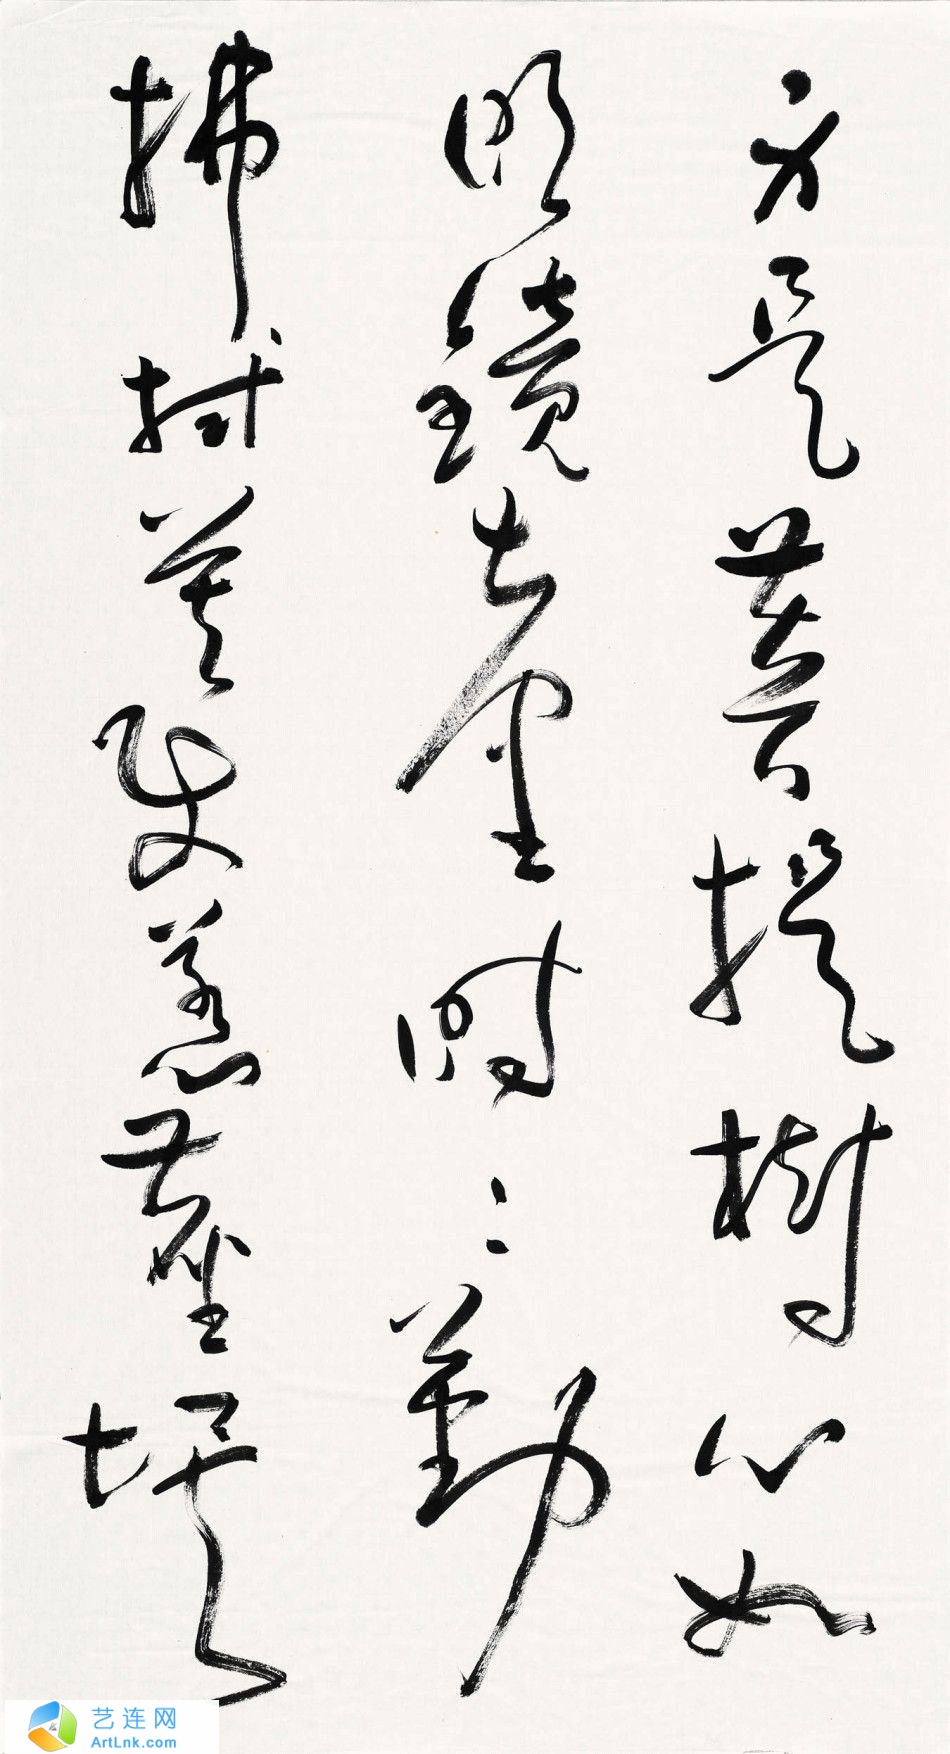 身是菩提樹心如
明鏡臺時〻勤
拂拭莫使惹塵埃
艺连网
ArtLnk.com